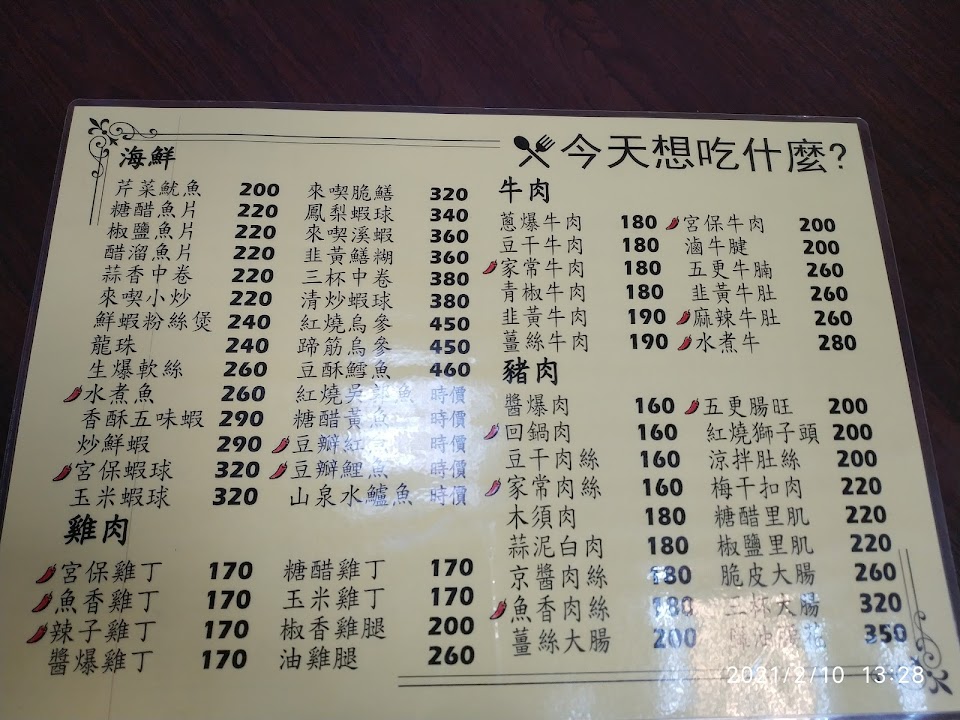 今天想吃什麼?
海鮮
芹菜魷魚 200
糖醋魚片 220
椒鹽魚片 220
醋溜魚片 220
蒜香中卷 220
來喫小炒 220
鮮蝦粉絲煲 240
龍珠 240
生爆軟絲 260
水煮魚 260
香酥五味蝦 290
炒鮮蝦 290
宮保蝦球 320
玉米蝦球 320
來喫脆鱔 320
鳳梨蝦球 340
來喫溪蝦 360
韭黃鱔糊 360
三杯中卷 380
清炒蝦球 380
紅燒烏參 450
蹄筋烏參 450
豆酥鱈魚 460
紅燒吳郭魚 時價
糖醋黃魚 時價
豆瓣紅 時價
豆瓣鯉魚 時價
山泉水鱸魚 時價
雞肉
宮保雞丁 170
魚香雞丁 170
辣子雞丁 170
醬爆雞丁 170
糖醋雞丁 170
玉米雞丁 170
椒香雞腿 200
油雞腿 260
牛肉
蔥爆牛肉 180
豆干牛肉 180
家常牛肉 180
青椒牛肉 180
韭黃牛肉 190
薑絲牛肉 190
宮保牛肉 200
滷牛腱 200
五更牛腩 260
韭黃牛肚 260
麻辣牛肚 260
水煮牛 280
豬肉
醬爆肉 160
回鍋肉 160
豆干肉絲 160
家常肉絲 160
木須肉 180
蒜泥白肉 180
京醬肉絲 180
魚香肉絲 180
薑絲大腸 200
五更腸旺 200
紅燒獅子頭 200
涼拌肚絲 200
梅干扣肉 220
糖醋里肌 220
椒鹽里肌 220
脆皮大腸 260
三杯大腸 320
350
2021/2/10 13:28